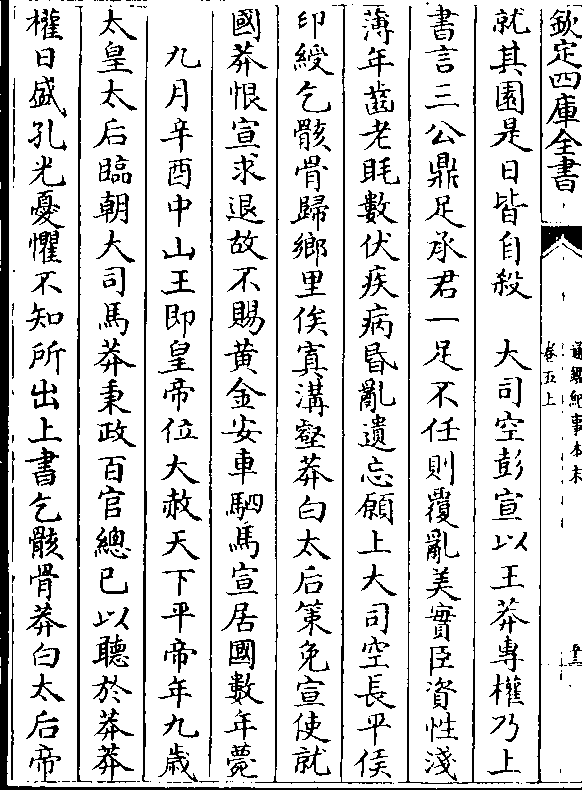 欽定四庫全書
通鑑紀事本末
卷五上
就其園是日皆自殺　大司空彭宣以王莽專權乃上
書言三公鼎足承君一足不任則覆亂美實臣資性淺
薄年齒老眊數伏疾病昏亂遺忘願上大司空長平侯
印綬乞骸骨歸鄉里俟寘溝壑莽白太后策免宣使就
國莽恨宣求退故不賜黃金安車駟馬宣居國數年薨
九月辛酉中山王即皇帝位大赦天下平帝年九歲
太皇太后臨朝大司馬莽秉政百官總已以聽於莽莽
權日盛孔光憂懼不知所出上書乞骸骨莽白太后帝